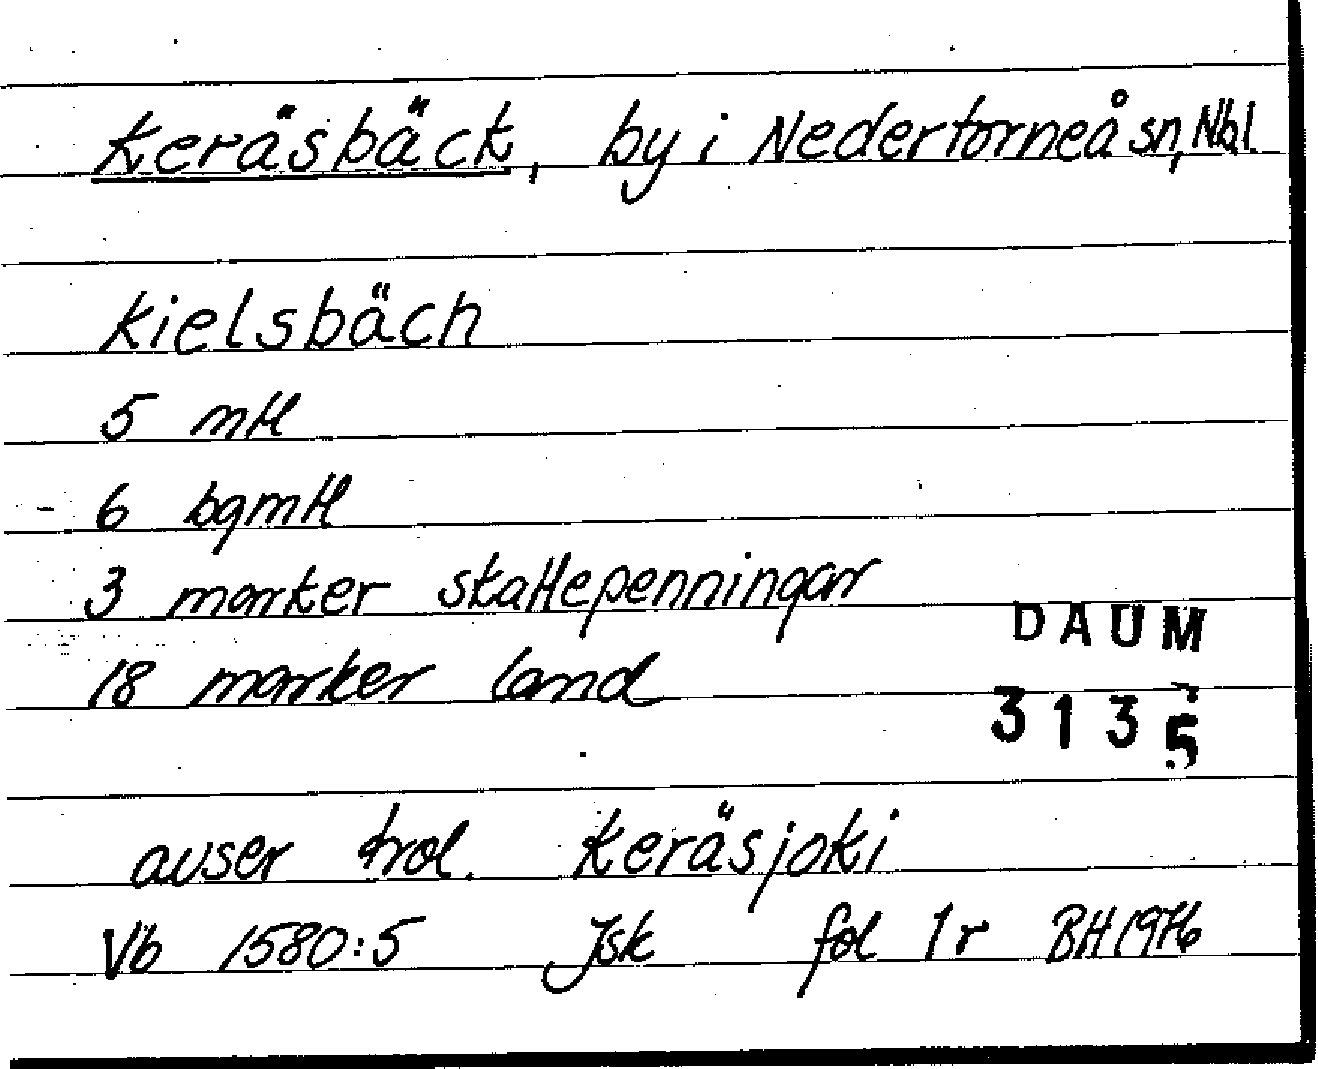 Keräsbäck, by i Nedertorneå sn, Nbl.
Kielsbäch
5 mtl
6 bgmtl
3 marker skattepenningar
18 marker land
DAUM
3135
avser trol. Keräsjoki
Vb 1580:5 Jsk fol 1r BH 1976